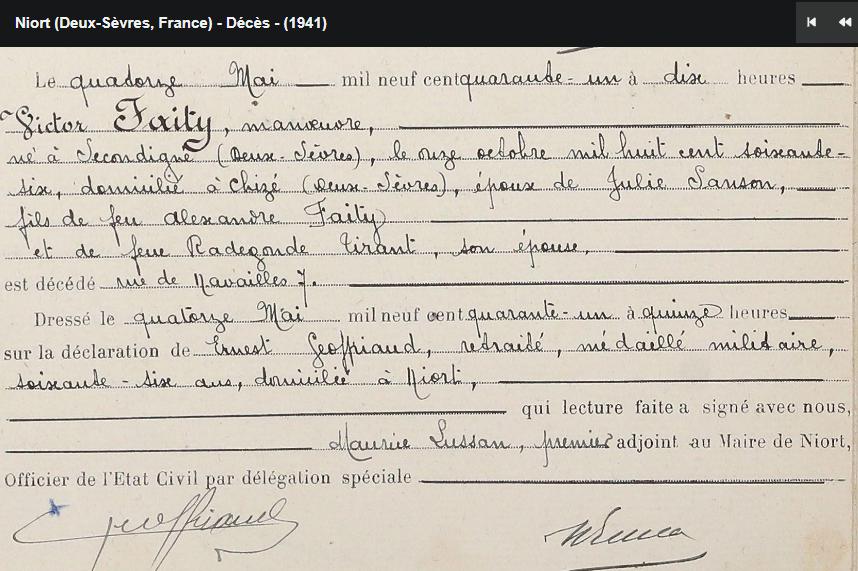 Niort (Deux-Sèvres, France) - Décès - (1941)
Le quatorze Mai mil neuf cent quarante-un à dix heures
Victor Faity, manœuvre,
né à Secondigné (Deux-Sèvres), le onze octobre mil huit cent soixante-
six, domicilié à Chizé (Deux-Sèvres), époux de Julie Sanson,
fils de feu Alexandre Faity
et de feue Radegonde Tirant, son épouse,
est décédé rue de Navailles 7.
Dressé le quatorze Mai mil neuf cent quarante-un à quinze heures
sur la déclaration de Ernest Geoffriaud, retraité, médaillé militaire,
soixante-six ans, domicilié à Niort,
qui lecture faite a signé avec nous,
Maurice Lussan, premier adjoint au Maire de Niort,
Officier de l'Etat Civil par délégation spéciale
Geoffriaud